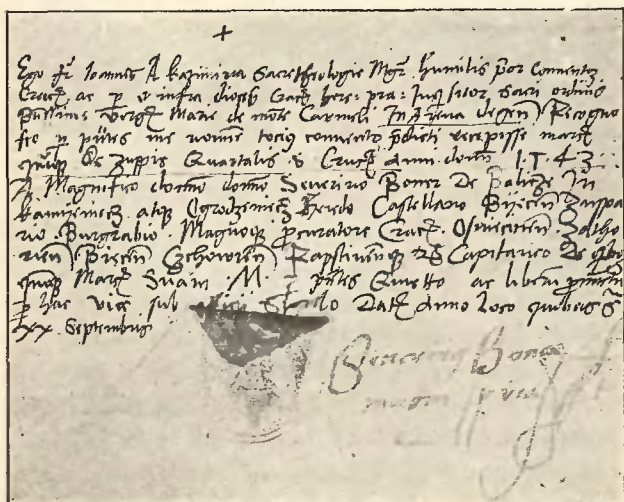 +
Ego fr Ioannes A kazimiria Sacre theologie Mgr humilis por Conventq
Cracz ac p et infra dioces Cracz here: pra: Inqsitor sacri ordinis
Btissime Verg Marie de mote Carmeli In Arena degen Recogno
sco p pntes me nomine tocius conventq pdicti recepisse marc
qnq De Zuppis Quartalis Cracz Anni domi 1543
A Magnifico domino domno Severino Boner De Balicze In
kamijeniecz atqe Ogrodzeniecz heredo Castellano Biecen Zuppa
rio Burgrabio Magnoqe pcuratore Cracz Osviecimen Zatho
rien Biecen Czchovien Rapstinenqe Capitanio De qbq
qnqe Marc Suam M pntes Quietto ac liberu
p has vice sub Sigillo Dat Anno Loco quibus
XX Septembris
Severinq Boner
manu ppria